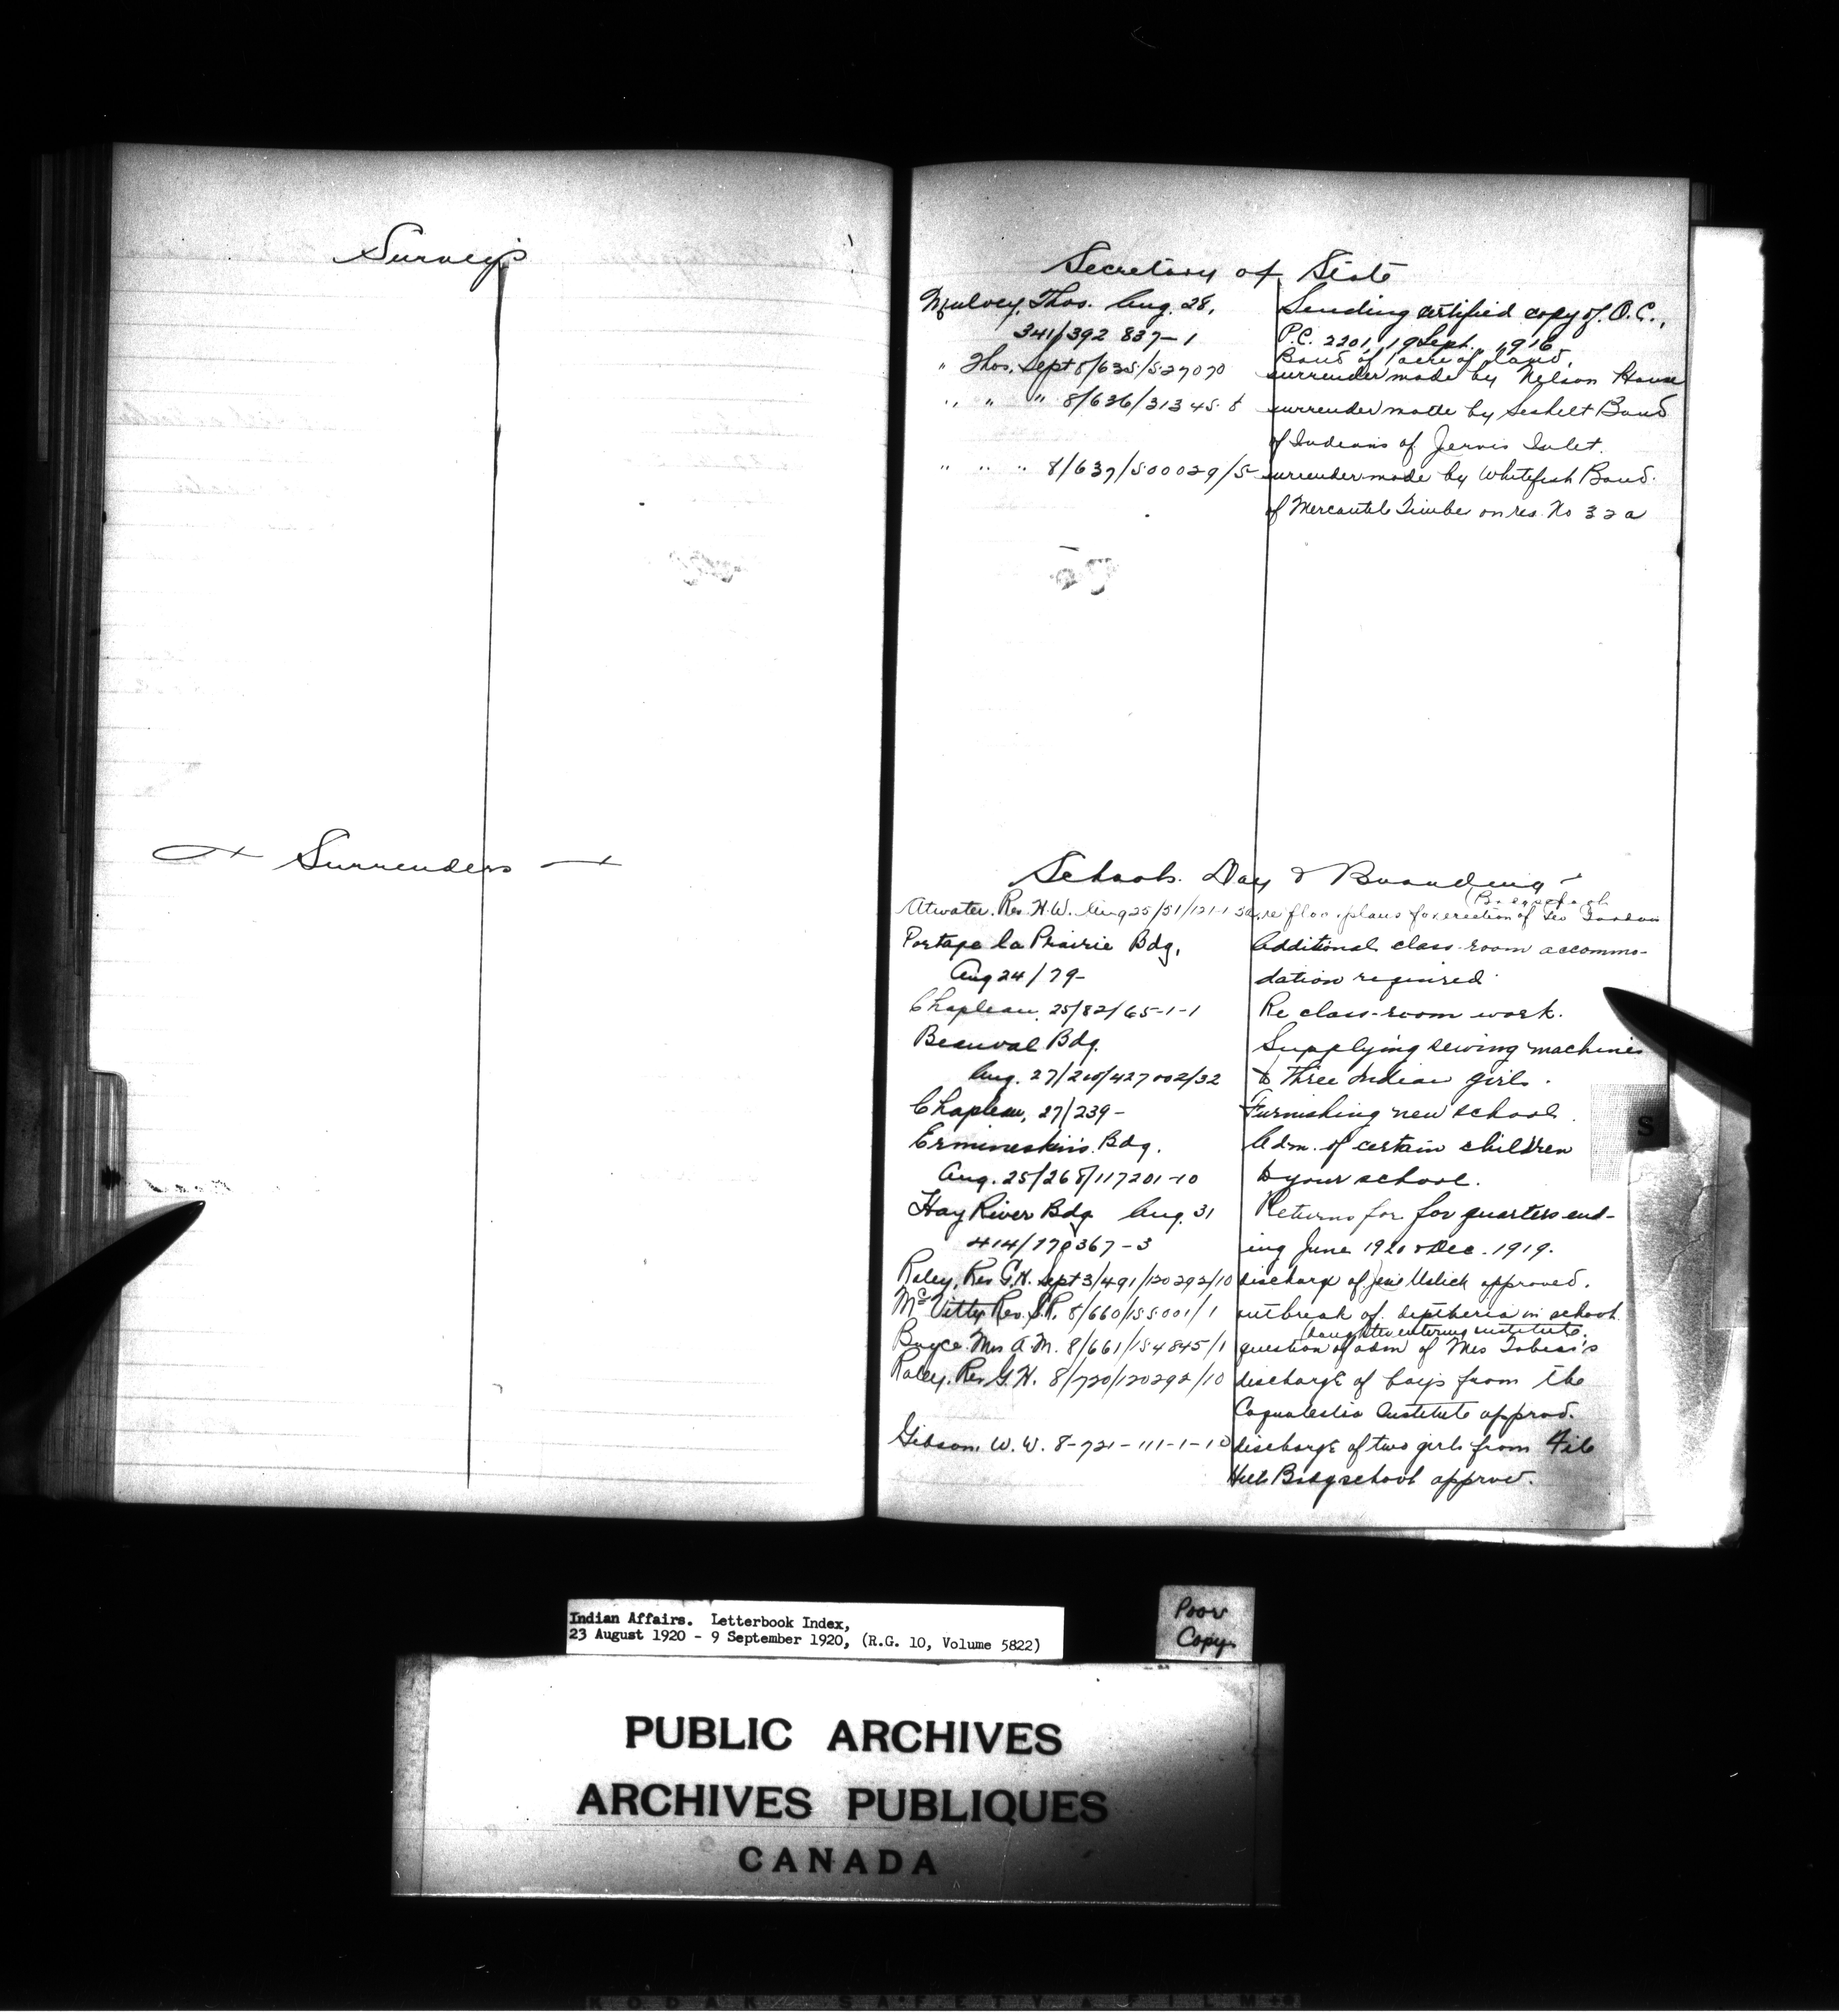 Surveys
Surrenders
Secretary of State
Mulvey, Thos. Aug. 28, Sending certified copy of O.C.,
341/392 837-1 P.C. 2201, 19 Sept. 1916
Band of 1 acre of land.
" Thos. Sept 8/635/527070 surrender made by Nelson House
" " " 8/636/31345-8 surrender made by Seshelt Band
of Indians of Jervis Inlet.
" " " 8/637/500029/5 surrender made by Whitefish Band.
of Mercantile Timber on res. No 32a
Schools. Day & Boarding
Atwater. Rev. H.W. Aug 25/51/121-1 re floor plans for erection of
Portage la Prairie Bdg. Additional class-room accommo-
Aug 24/79- dation required
Chapleau. 25/82/65-1-1 Re class-room work.
Beauval Bdg. Supplying sewing machines
Aug. 27/210/427002/32 to three Indian girls.
Chapleau, 27/239- Furnishing new school.
Ermineskin's Bdg. Adm. of certain children
Aug. 25/268/117201-10 to your school.
Hay River Bdg Aug. 31 Returns for for quarters end-
414/178367-3 ing June 1920 & Dec. 1919.
Raley, Rev G.H. Sept 3/491/120292/10 discharge of approved.
McVitty Rev. S.R. 8/660/155001/1 outbreak of diptheria in school
daughter entering institute.
Boyce Mrs A.M. 8/661/154845/1 question of adm of Mrs Tobias's
Raley. Rev G.H. 8/720/120292/10 discharge of boys from the
Coqualeetza Institute approd.
Gibson, W.W. 8-721-111-1-10 discharge of two girls from File
Hills Bdg school approv.
S
Indian Affairs. Letterbook Index,
23 August 1920 - 9 September 1920, (R.G. 10, Volume 5822)
Poor
Copy
PUBLIC ARCHIVES
ARCHIVES PUBLIQUES
CANADA
KODAK SAFETY FILM